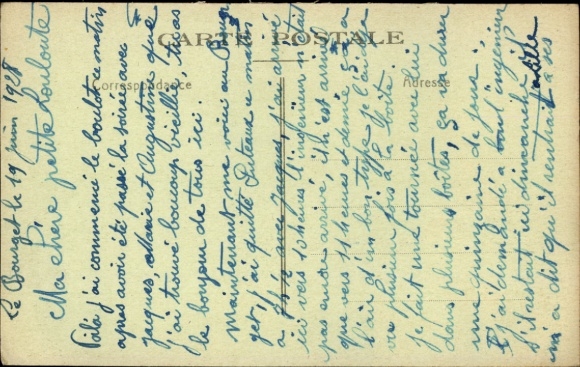 CARTE POSTALE
Correspondance
Adresse
Le Bourget le 19 juin 1928
Ma chère petite Louloute
Voilà j'ai commencé le boulot ce matin
après avoir été passé la soirée avec
Jacques Marie et Augustine que
j'ai trouvé beaucoup vieilli, tu as
le bonjour de tous ici.
Maintenant me voici au Bour
get, j'ai quitté Puteaux ce matin
à avec Jacques, j'ai arrivé
ici vers 10 heures l'ingénieur n'était
pas encore arrivé, il n'est arrivé
que vers 11 heures et demie, ça a
l'air d'un bon type je l'ai
vu plusieurs fois à la boîte.
Je fait une tournée avec lui
dans plusieurs boîtes, ça va durer
une quinzaine de jours,
j'ai demandé à l'ingénieur
s'il restait ici dimanche
m'a dit qu'il rentrait à ses